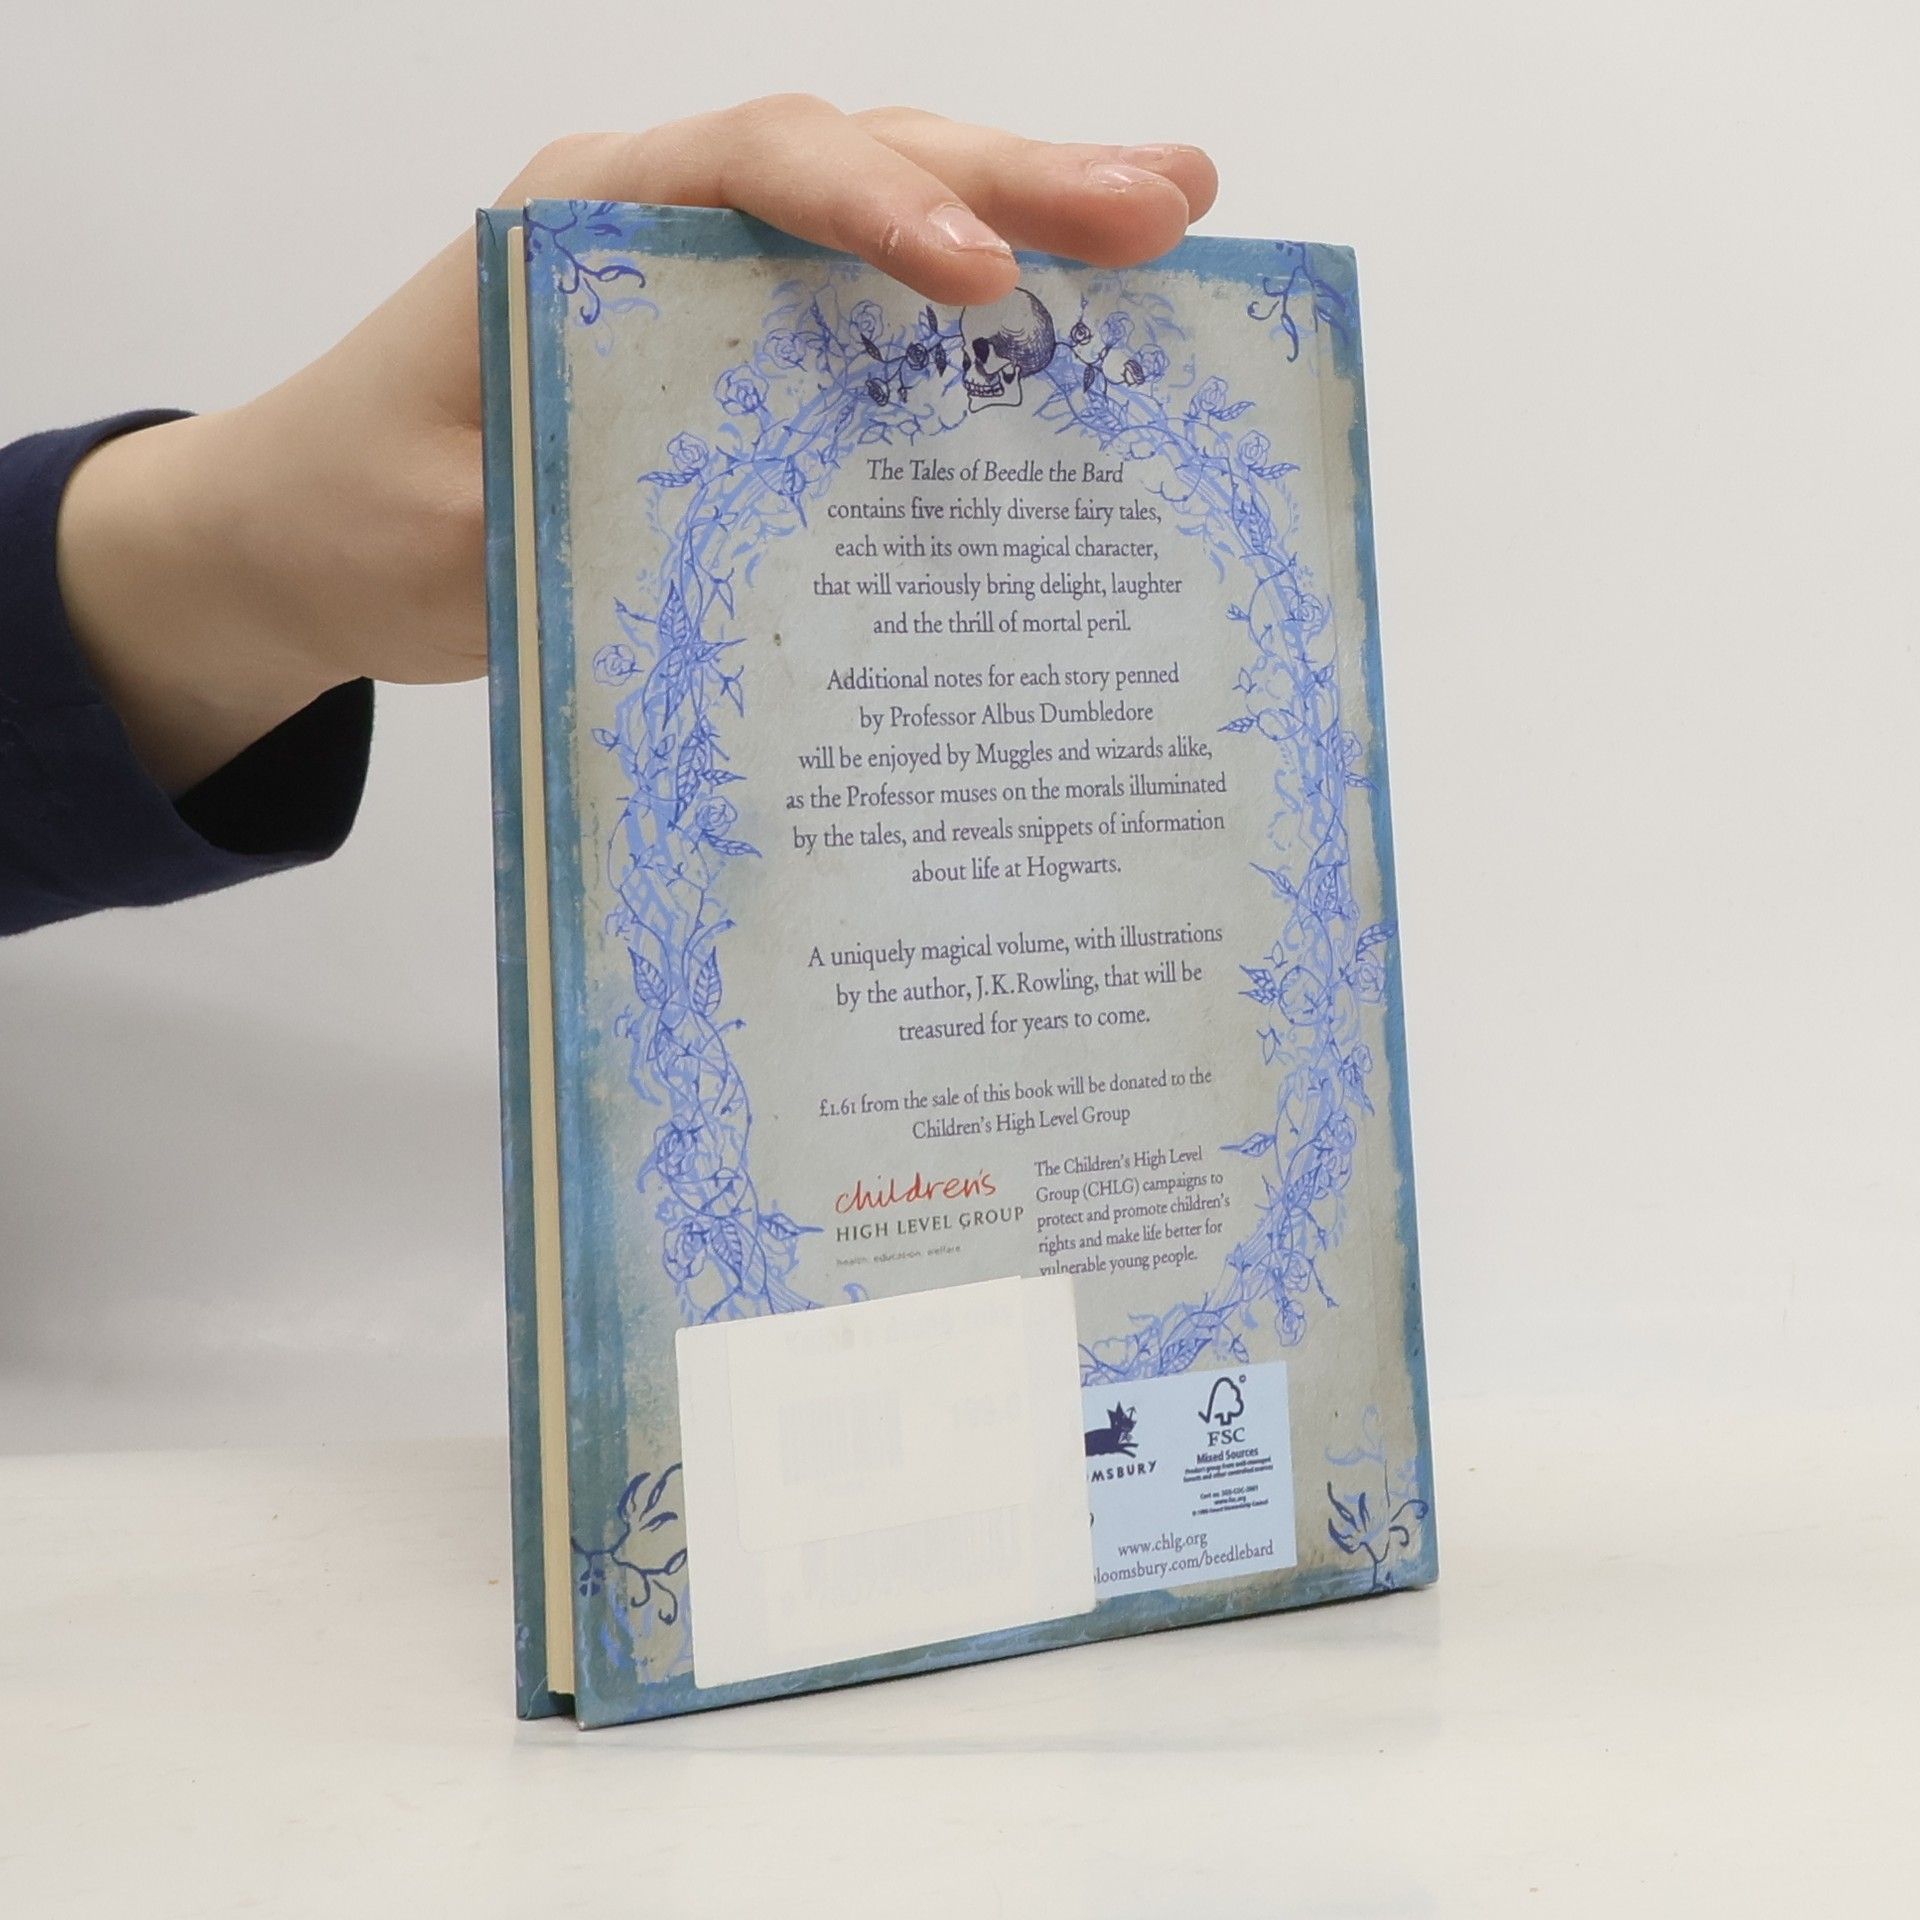 The Tales of Beedle the Bard
contains five richly diverse fairy tales,
each with its own magical character,
that will variously bring delight, laughter
and the thrill of mortal peril.
Additional notes for each story penned
by Professor Albus Dumbledore
will be enjoyed by Muggles and wizards alike,
as the Professor muses on the morals illuminated
by the tales, and reveals snippets of information
about life at Hogwarts.
A uniquely magical volume, with illustrations
by the author, J.K.Rowling, that will be
treasured for years to come.
£1.61 from the sale of this book will be donated to the
Children's High Level Group
children's
HIGH LEVEL GROUP
health. education. welfare
The Children's High Level
Group (CHLG) campaigns to
protect and promote children's
rights and make life better for
vulnerable young people.
MSBURY
FSC
Mixed Sources
Product group from well-managed
forests and other controlled sources
www.fsc.org
© 1996 Forest Stewardship Council
www.chlg.org
loomsbury.com/beedlebard